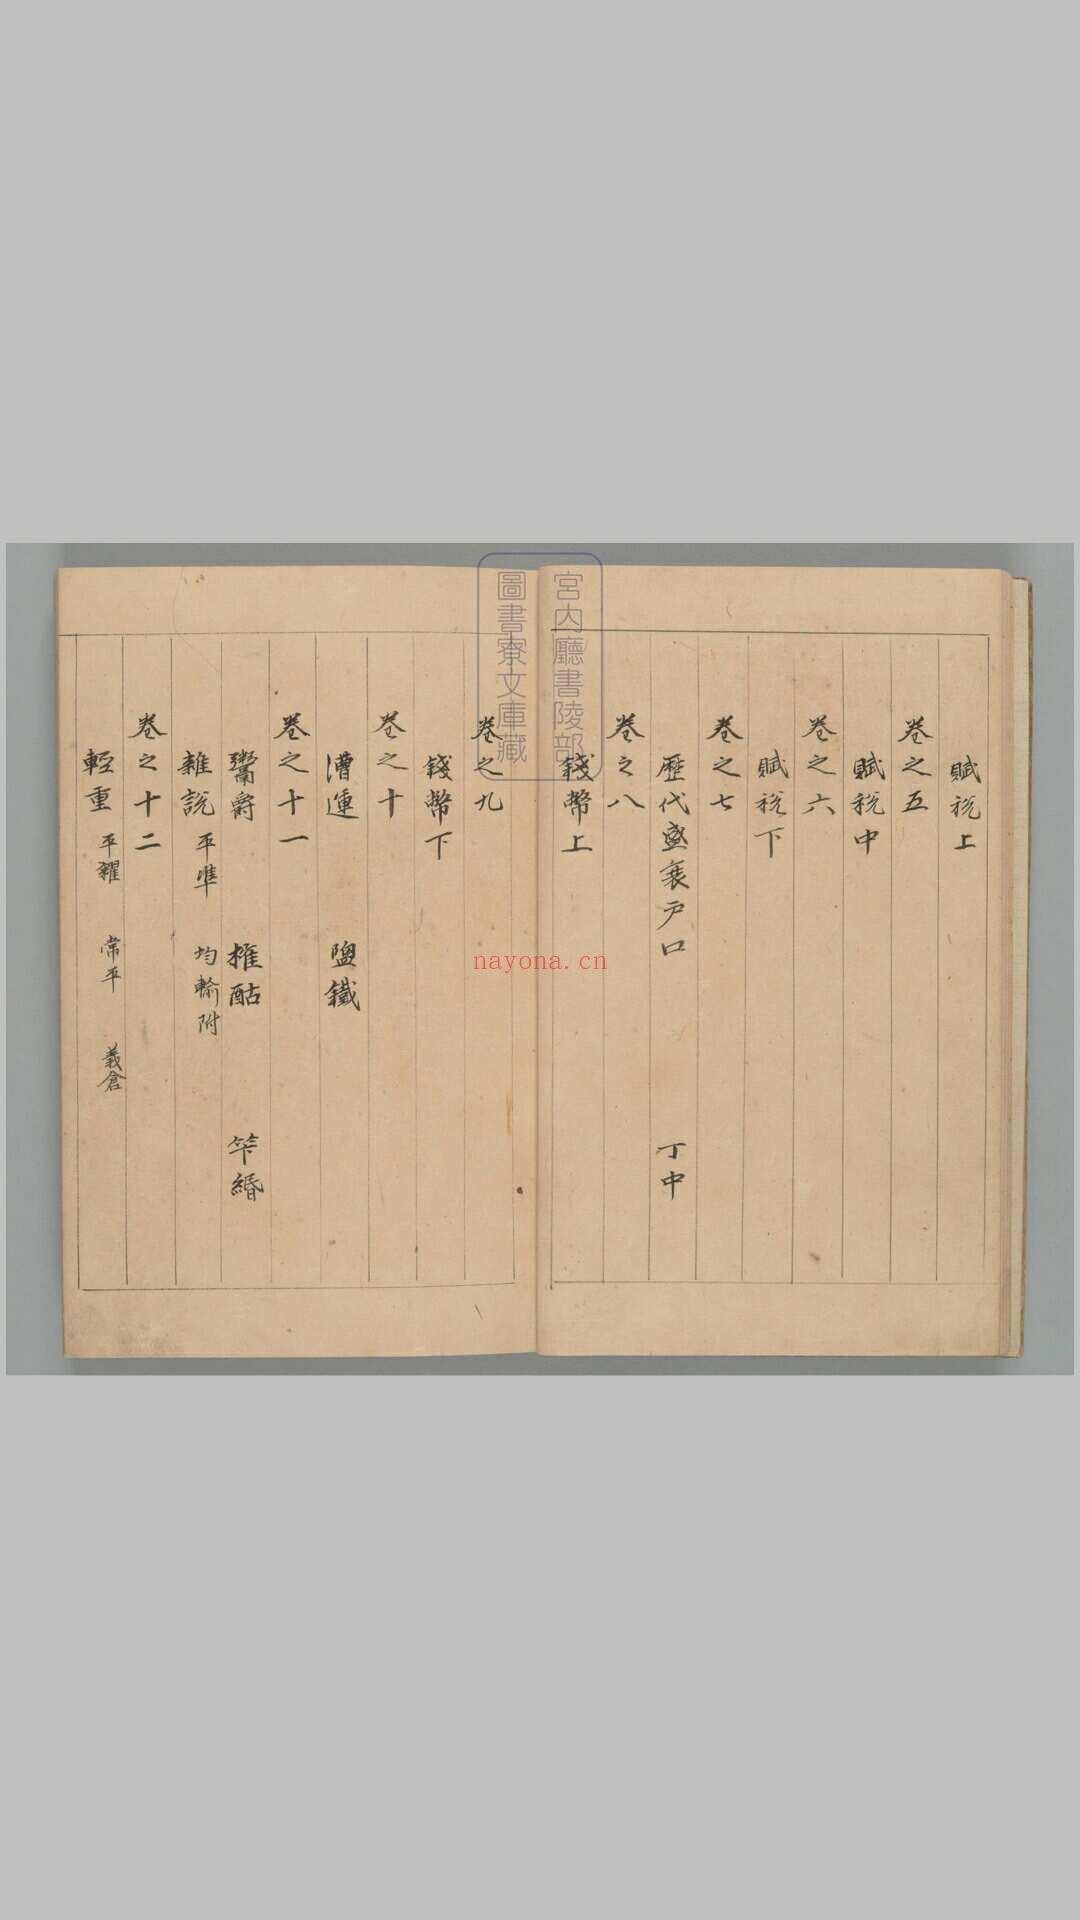 賦稅上
卷之五
賦稅中
卷之六
賦稅下
卷之七
歷代盛衰户口 丁中
卷之八
錢幣上
卷之九
錢幣下
卷之十
漕運 鹽鐵
卷之十一
鬻爵 榷酤 筭緡
雜說 平準 均輸附
卷之十二
輕重 平糴 常平 義倉
宮内廳書陵部
圖書寮文庫藏
nayona.cn